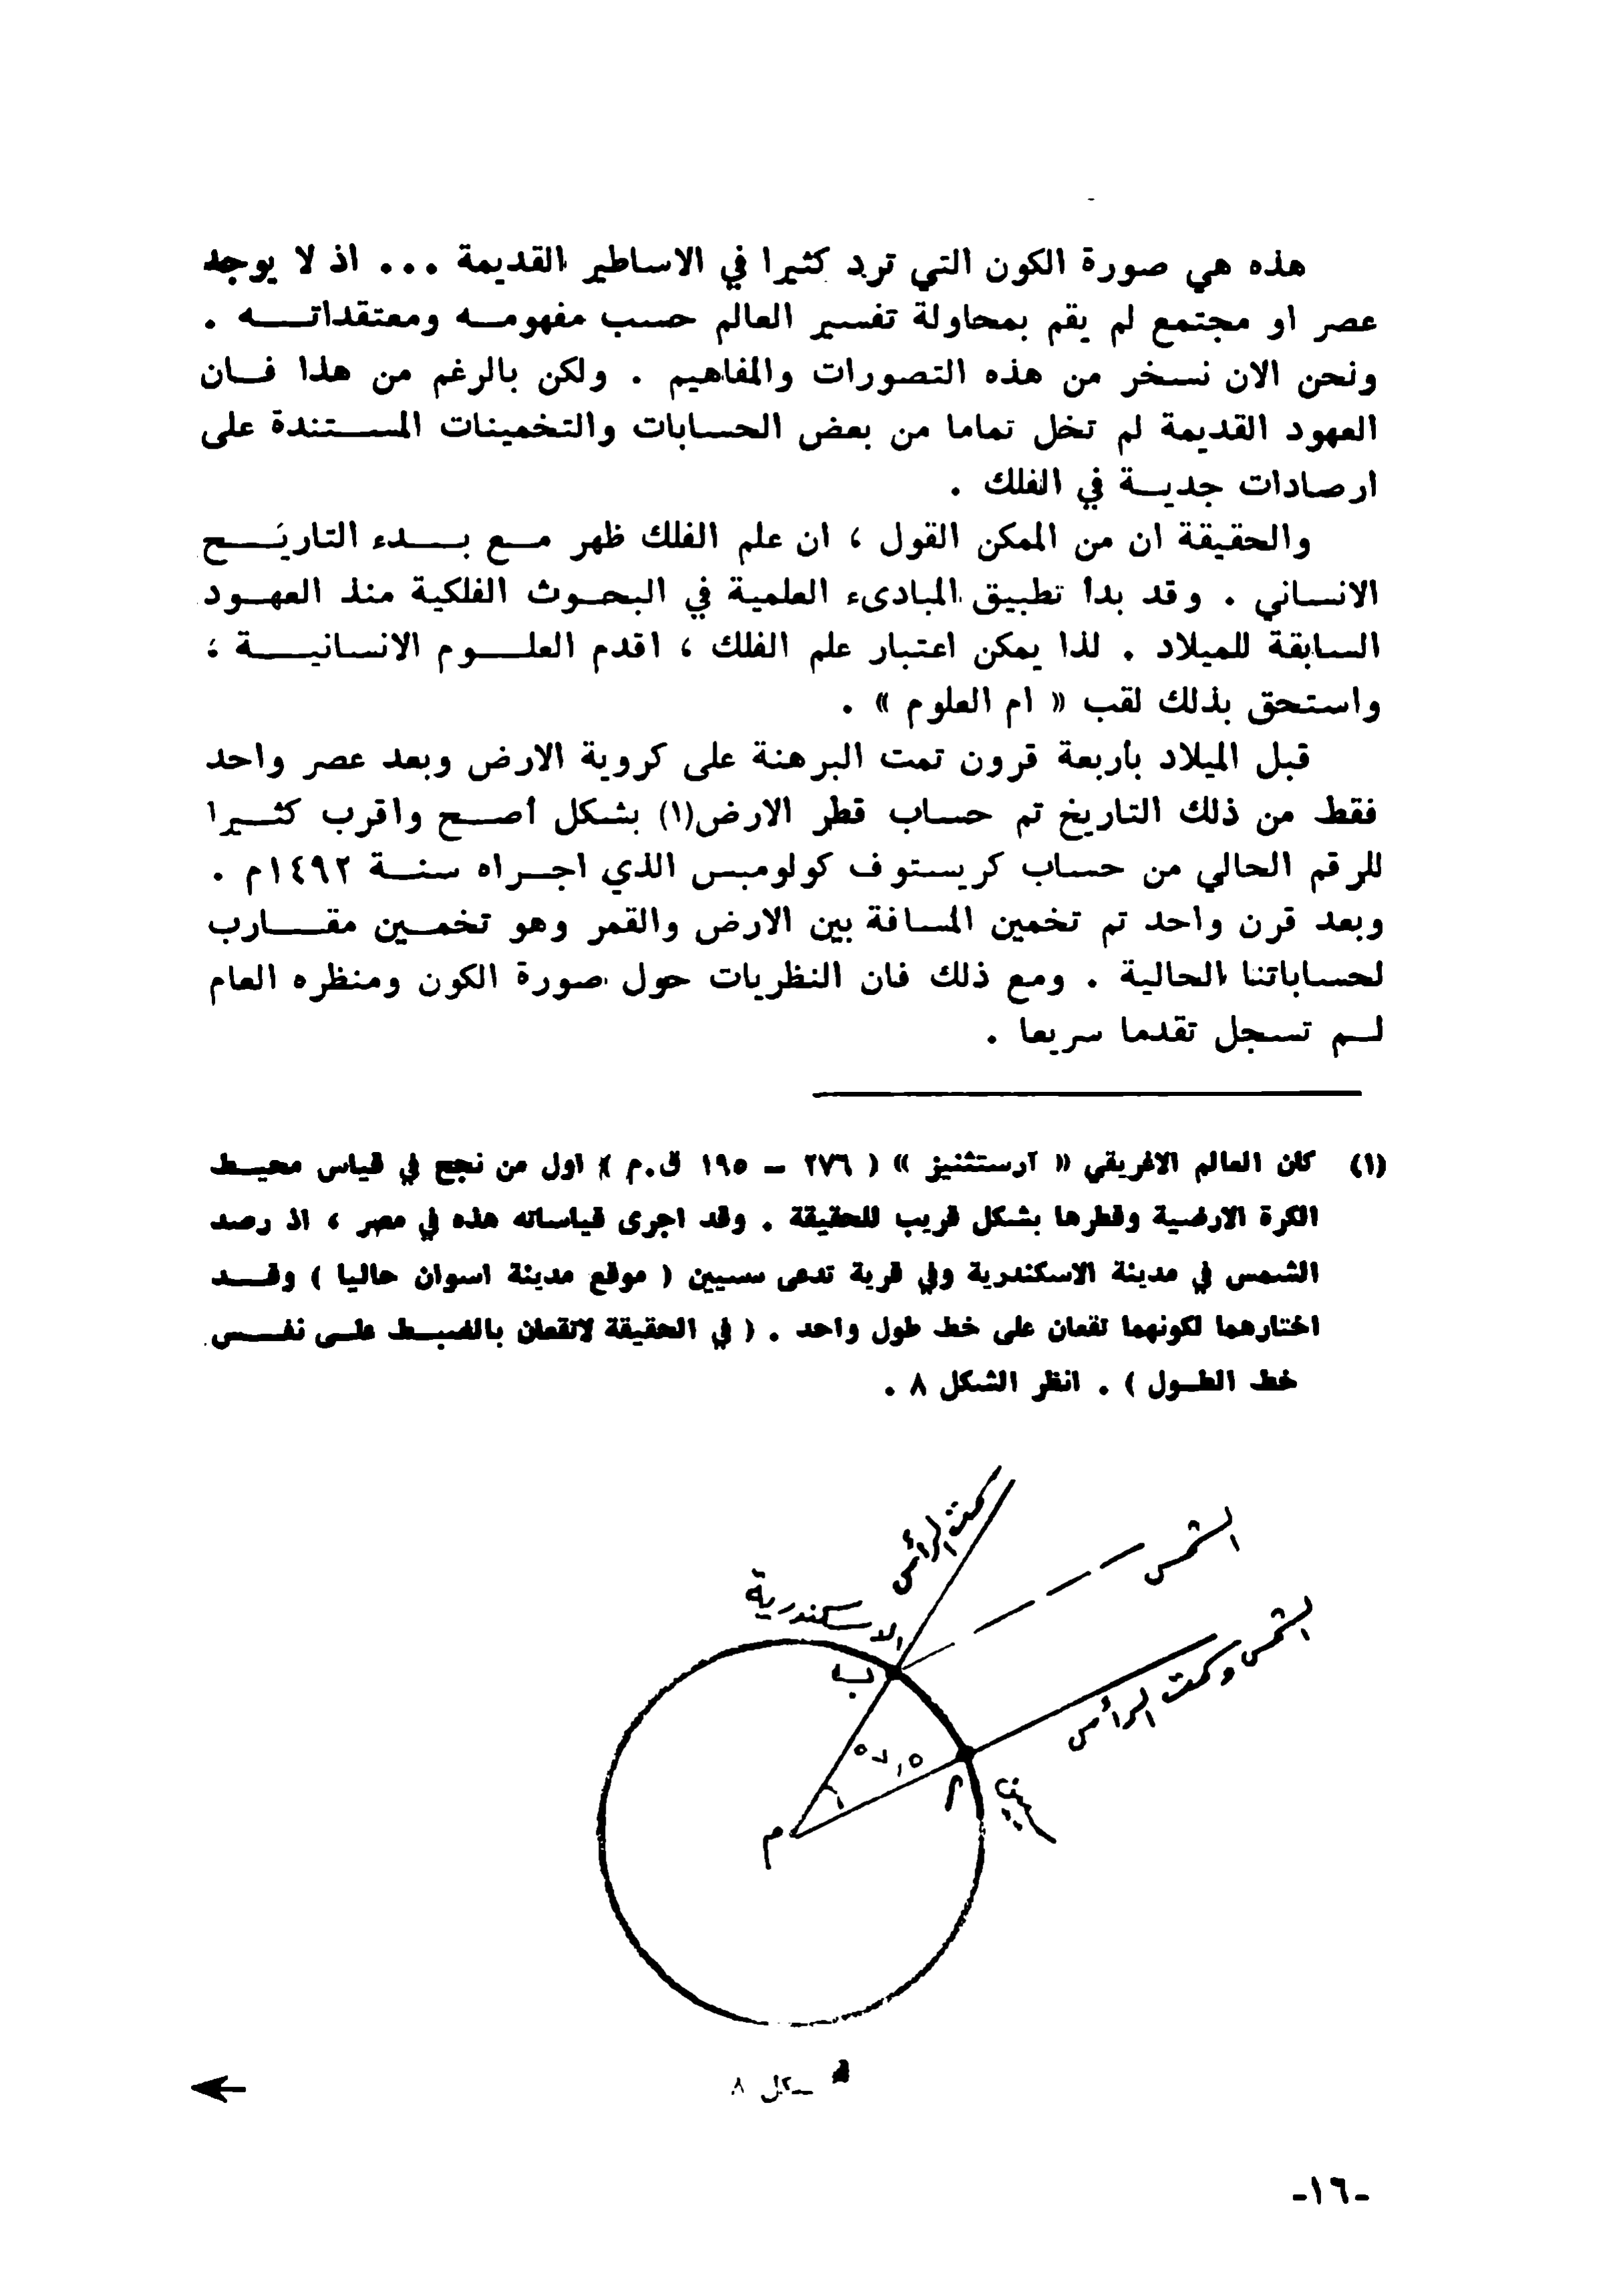 هذه هي صورة الكون التي ترد كثيرا في الاساطير القديمة ... اذ لا يوجد
عصر او مجتمع لم يقم بمحاولة تفسير العالم حسب مفهومه ومعتقداته .
ونحن الان نسخر من هذه التصورات والمفاهيم . ولكن بالرغم من هذا فان
العهود القديمة لم تخل تماما من بعض الحسابات والتخمينات المستندة على
ارصادات جدية في الفلك .
والحقيقة ان من الممكن القول ، ان علم الفلك ظهر مع بدء التاريخ
الانساني . وقد بدأ تطبيق المبادىء العلمية في البحوث الفلكية منذ العهود
السابقة للميلاد . لذا يمكن اعتبار علم الفلك ، اقدم العلوم الانسانية ،
واستحق بذلك لقب « ام العلوم » .
قبل الميلاد بأربعة قرون تمت البرهنة على كروية الارض وبعد عصر واحد
فقط من ذلك التاريخ تم حساب قطر الارض(١) بشكل أصح واقرب كثيرا
للرقم الحالي من حساب كريستوف كولومبس الذي اجراه سنة ١٤٩٢م .
وبعد قرن واحد تم تخمين المسافة بين الارض والقمر وهو تخمين مقارب
لحساباتنا الحالية . ومع ذلك فان النظريات حول صورة الكون ومنظره العام
لم تسجل تقدما سريعا .
(١) كان العالم الاغريقي « آرستثنيز » ( ٢٧٦ - ١٩٥ ق.م ) اول من نجح في قياس محيط
الكرة الارضية وقطرها بشكل قريب للحقيقة . وقد اجرى قياساته هذه في مصر ، اذ رصد
الشمس في مدينة الاسكندرية وفي قرية تدعى سيين ( موقع مدينة اسوان حاليا ) وقد
اختارهما لكونهما تقعان على خط طول واحد . ( في الحقيقة لاتقعان بالضبط على نفس
خط الطول ) . انظر الشكل ٨ .
سمت الرأس
الشمس
الاسكندرية
الشمس وسمت الرأس
ب
٥٧,٥
أ
سيين
م
شكل ٨
-١٦-